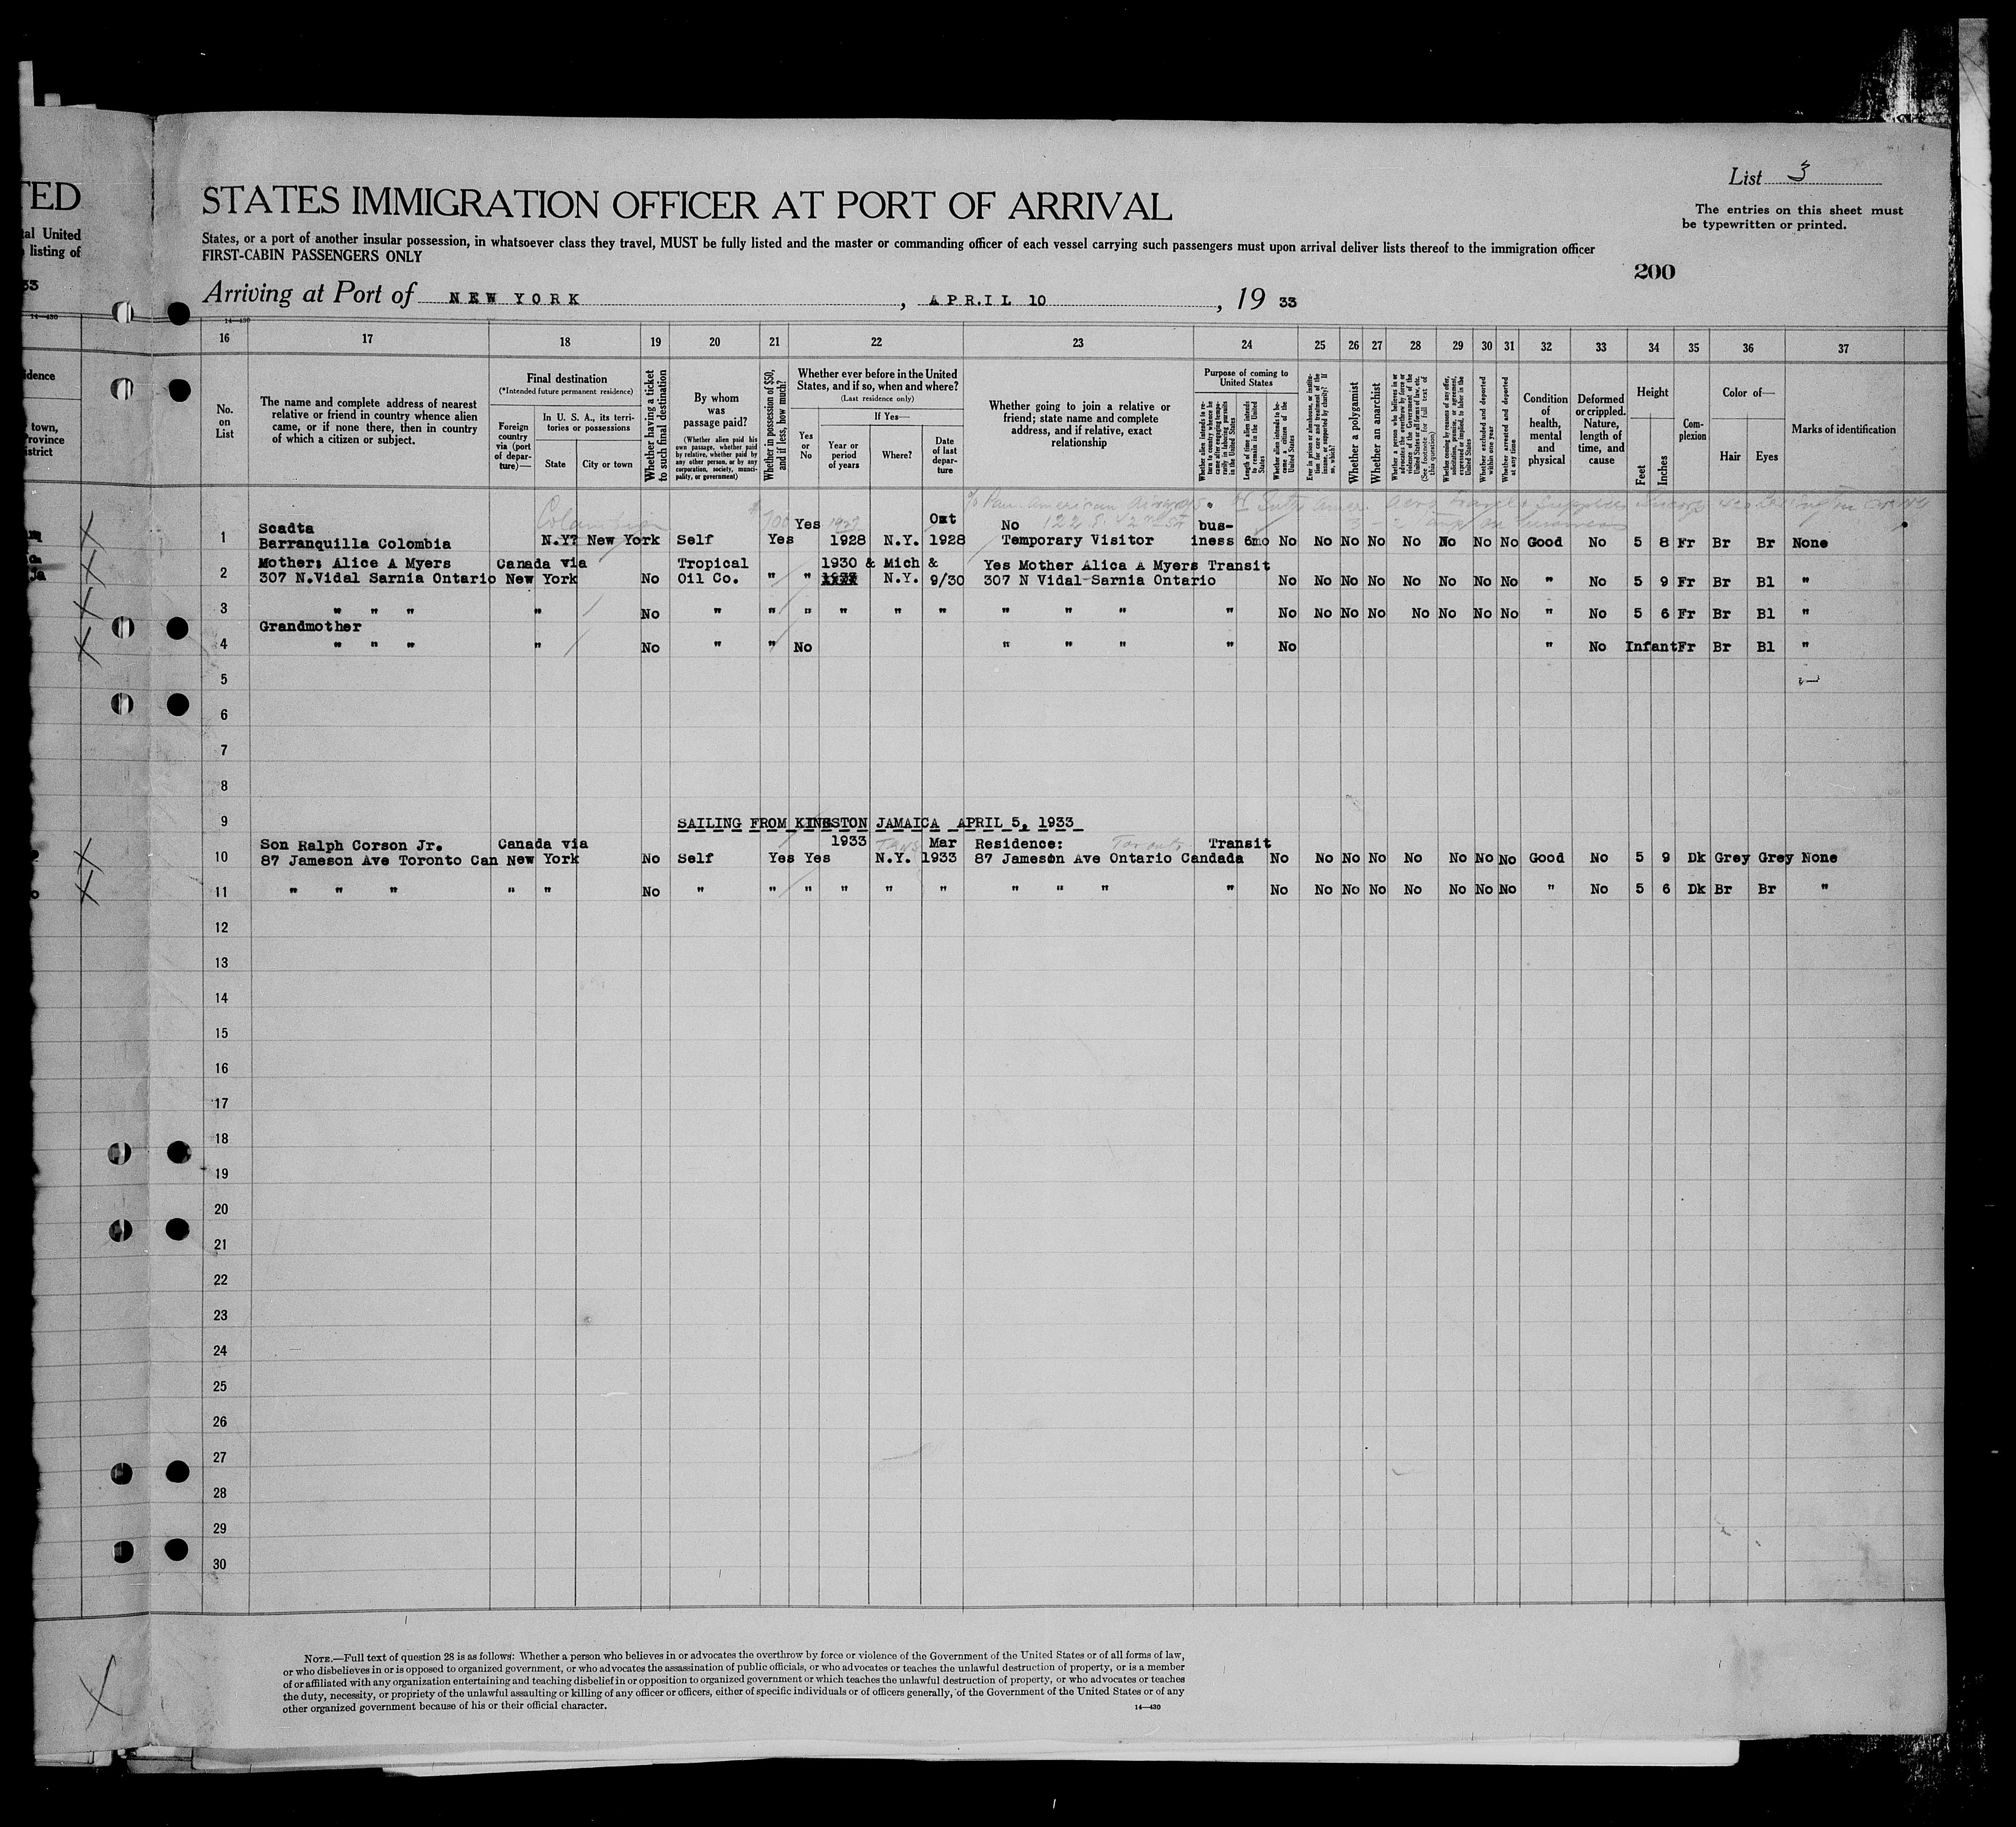 TED
STATES IMMIGRATION OFFICER AT PORT OF ARRIVAL
List 3
The entries on this sheet must
be typewritten or printed.
tal United
listing of
33
States, or a port of another insular possession, in whatsoever class they travel, MUST be fully listed and the master or commanding officer of each vessel carrying such passengers must upon arrival deliver lists thereof to the immigration officer
FIRST-CABIN PASSENGERS ONLY
200
Arriving at Port of NEW YORK, APRIL 10, 19 33
14—430
14—430
16 17 18 19 20 21 22 23 24 25 26 27 28 29 30 31 32 33 34 35 36 37
No. on List
The name and complete address of nearest relative or friend in country whence alien came, or if none there, then in country of which a citizen or subject.
Final destination
(*Intended future permanent residence)
Foreign country via (port of departure)—
In U. S. A., its territories or possessions
State
City or town
Whether having a ticket to such final destination
By whom was passage paid?
(Whether alien paid his own passage, whether paid by relative, whether paid by any other person, or by any corporation, society, municipality, or government)
Whether in possession of $50, and if less, how much?
Whether ever before in the United States, and if so, when and where?
(Last residence only)
Yes or No
If Yes—
Year or period of years
Where?
Date of last departure
Whether going to join a relative or friend; state name and complete address, and if relative, exact relationship
Purpose of coming to United States
Whether alien intends to return to country whence he came after engaging temporarily in laboring pursuits in the United States
Length of time alien intends to remain in the United States
Whether alien intends to become a citizen of the United States
Ever in prison or almshouse, or institution for care and treatment of the insane, or supported by charity? If so, which?
Whether a polygamist
Whether an anarchist
Whether a person who believes in or advocates the overthrow by force or violence of the Government of the United States or all forms of law, etc. (See footnote for full text of this question)
Whether coming by reasons of any offer, solicitation, promise, or agreement, expressed or implied, to labor in the United States
Whether excluded and deported within one year
Whether arrested and deported at any time
Condition of health, mental and physical
Deformed or crippled. Nature, length of time, and cause
Height
Feet
Inches
Complexion
Color of—
Hair
Eyes
Marks of identification
Colombia
c/o Pan American Airways
1 Scadta Yes 1927 Oct No 122 E. 42nd St bus-
Barranquilla Colombia N.Y? New York Self Yes 1928 N.Y. 1928 Temporary Visitor iness 6mo No No No No No No No No Good No 5 8 Fr Br Br None
2 Mother: Alice A Myers Canada via Tropical 1930 & Mich & Yes Mother Alica A Myers Transit
307 N.Vidal Sarnia Ontario New York No Oil Co. " " N.Y. 9/30 307 N Vidal Sarnia Ontario No No No No No No No No " No 5 9 Fr Br Bl "
3 " " " " No " " " " " " " " " " No No No No No No No No " No 5 6 Fr Br Bl "
Grandmother
4 " " " " No " " No " " " " No " No Infant Fr Br Bl "
5
6
7
8
9 SAILING FROM KINGSTON JAMAICA APRIL 5, 1933
10 Son Ralph Corson Jr. Canada via 1933 Mar Residence: Toronto Transit
87 Jameson Ave Toronto Can New York No Self Yes Yes N.Y. 1933 87 Jameson Ave Ontario Candada No No No No No No No No Good No 5 9 Dk Grey Grey None
11 " " " " " No " " " " " " " " " " No No No No No No No No " No 5 6 Dk Br Br "
12
13
14
15
16
17
18
19
20
21
22
23
24
25
26
27
28
29
30
NOTE.—Full text of question 28 is as follows: Whether a person who believes in or advocates the overthrow by force or violence of the Government of the United States or of all forms of law,
or who disbelieves in or is opposed to organized government, or who advocates the assassination of public officials, or who advocates or teaches the unlawful destruction of property, or is a member
of or affiliated with any organization entertaining and teaching disbelief in or opposition to organized government or which teaches the unlawful destruction of property, or who advocates or teaches
the duty, necessity, or propriety of the unlawful assaulting or killing of any officer or officers, either of specific individuals or of officers generally, of the Government of the United States or of any
other organized government because of his or their official character.
14—430